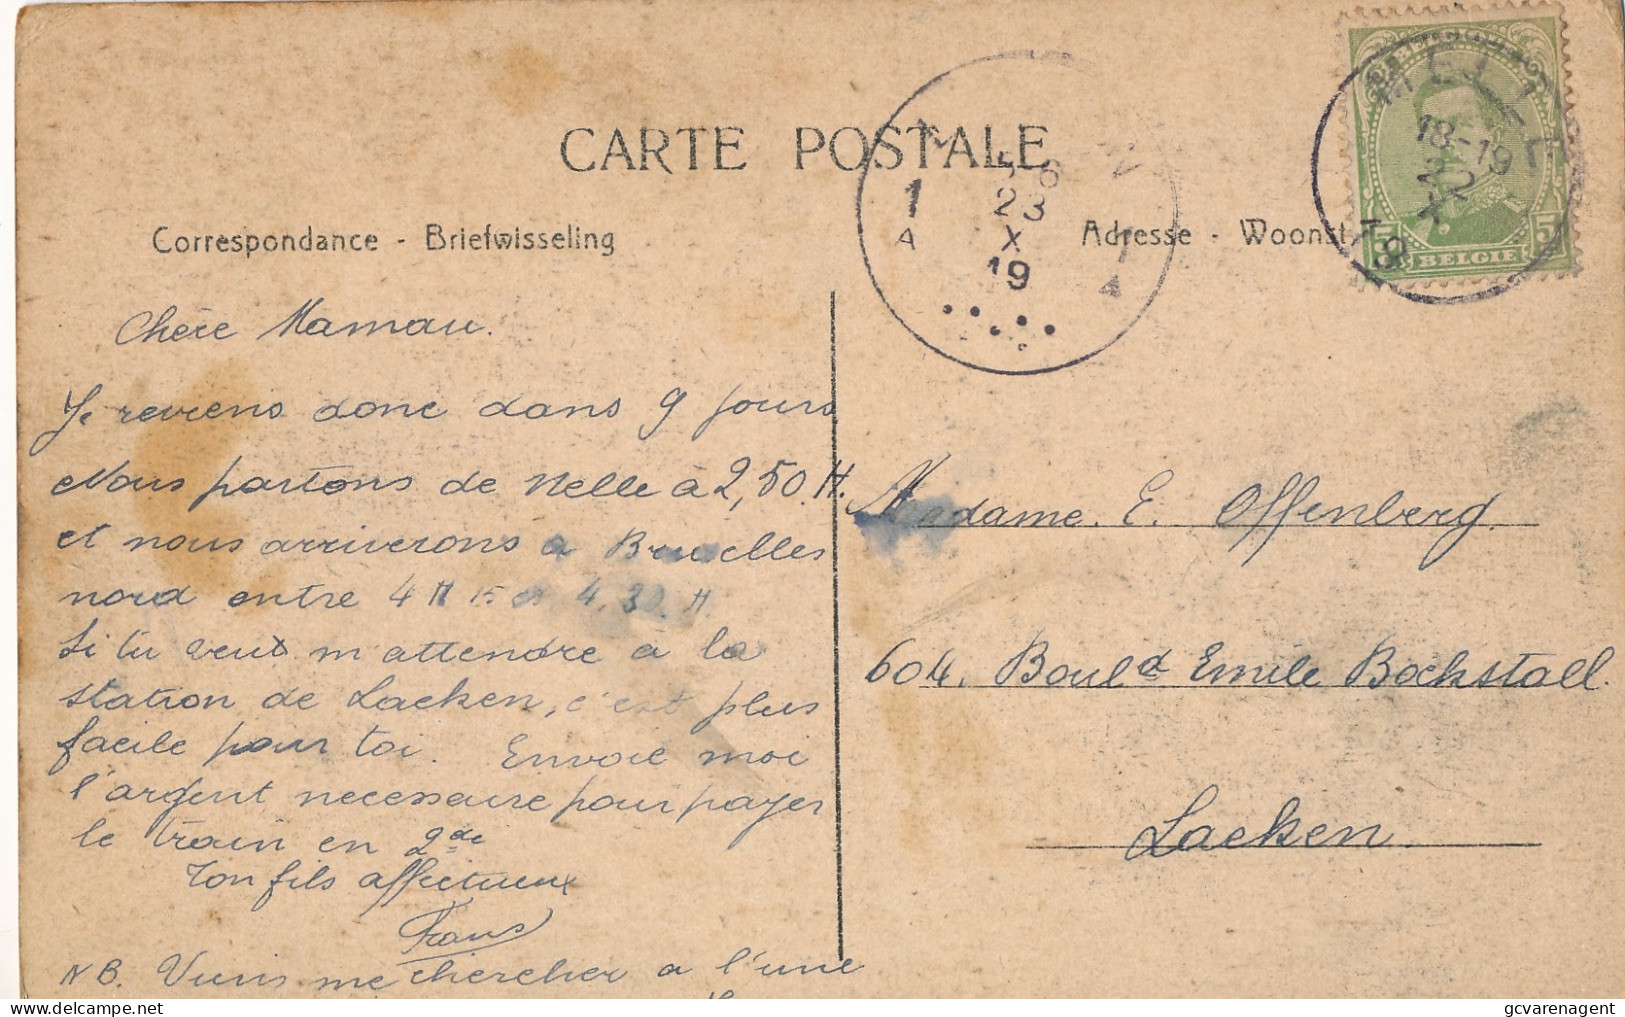 CARTE POSTALE
Correspondance - Briefwisseling
Adresse - Woonst
MELLE
18-19
22
X
19
BELGIE
5
1
A
5-6
23
X
19
1
A
Chère Maman.
Je reviens donc dans 9 jours
Nous partons de Melle à 2,50.H.
et nous arriverons a Bruxelles
nord entre 4 H 15 et 4.30. H
Si tu veux m'attendre a la
station de Laeken, c'est plus
facile pour toi. Envoie moi
l'argent necessaire pour payer
le train en 2de
Ton fils affectueux
Frans
NB. Viens me chercher a l'une
Madame. E. Offenberg.
604. Bould Emile Bockstall.
Laeken.
gcvarenagent